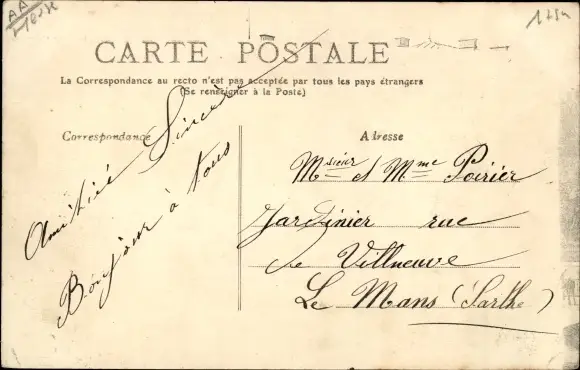 CARTE POSTALE
La Correspondance au recto n'est pas acceptée par tous les pays étrangers
(Se renseigner à la Poste)
Correspondance
Amitié Sincère
Bonjour à tous
Adresse
Msieur et Mme Poirier
Jardinier rue
de Villneuve
Le Mans (Sarthe)